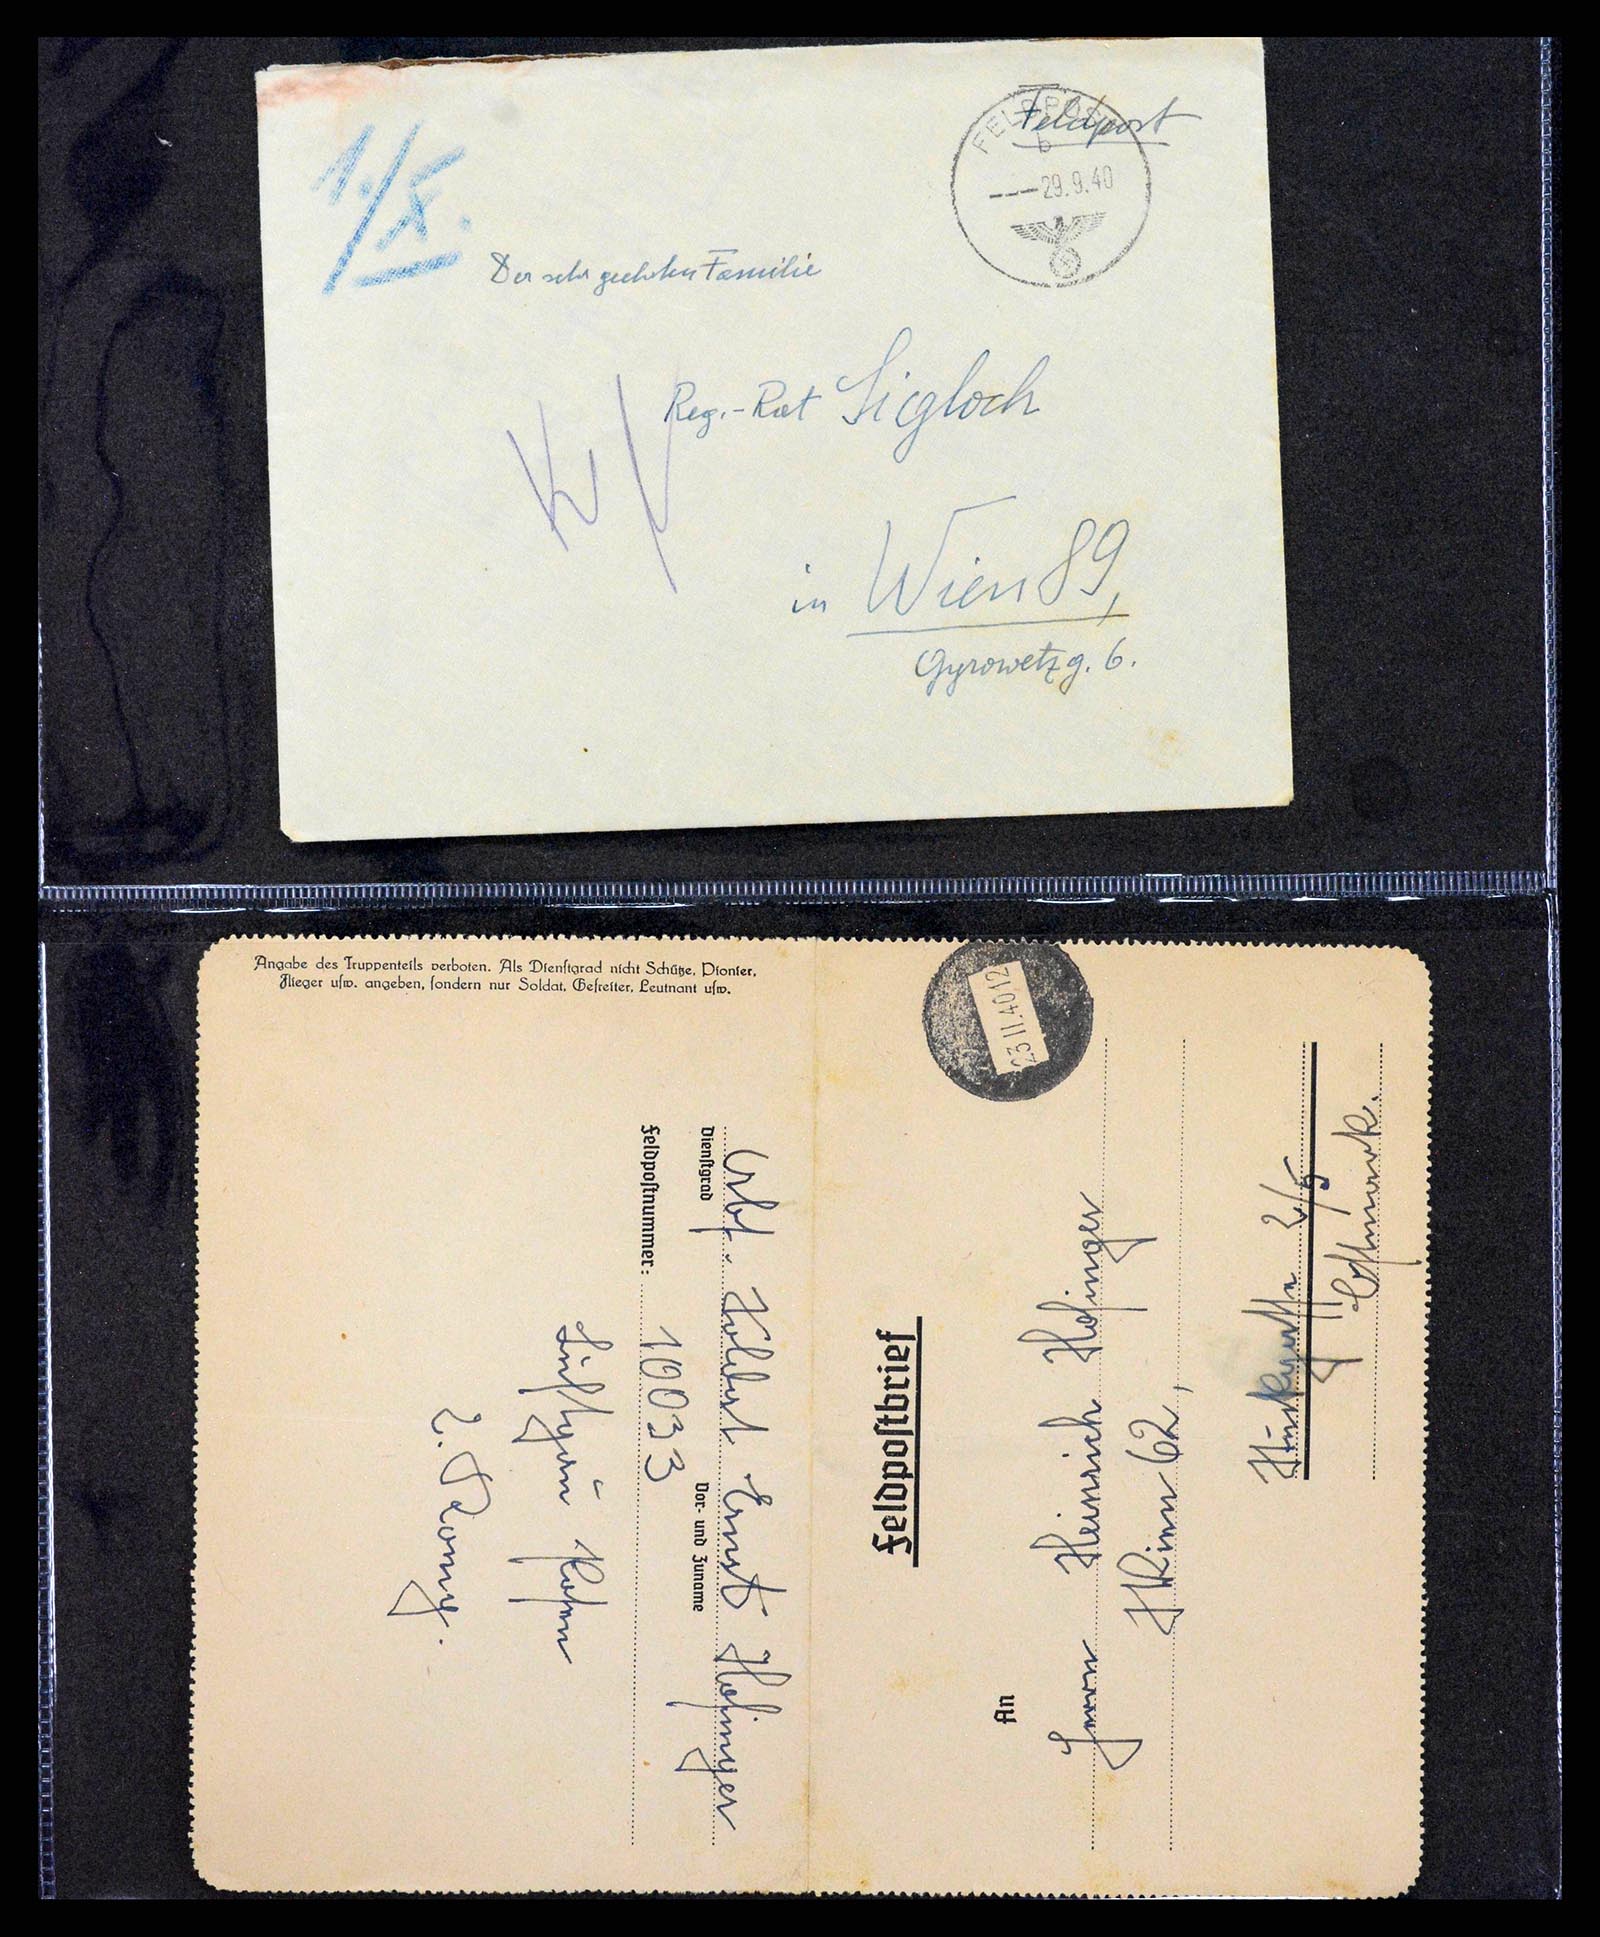 1./X.
Feldpost
FELDPOST
b
---29.9.40
Der sehr geehrten Familie
Reg.-Rat Sigloch
in Wien 89,
Gyrowetzg. 6.
Angabe des Truppenteils verboten. Als Dienſtgrad nicht Schütze, Pionier,
Flieger uſw. angeben, ſondern nur Soldat, Gefreiter, Leutnant uſw.
23.11.40.12
Feldpoſtbrief
An
Herrn Heinrich Hofinger
Wien 62,
2/5
Ernst Hofinger
Dienſtgrad
Vor- und Zuname
Feldpoſtnummer: 10033